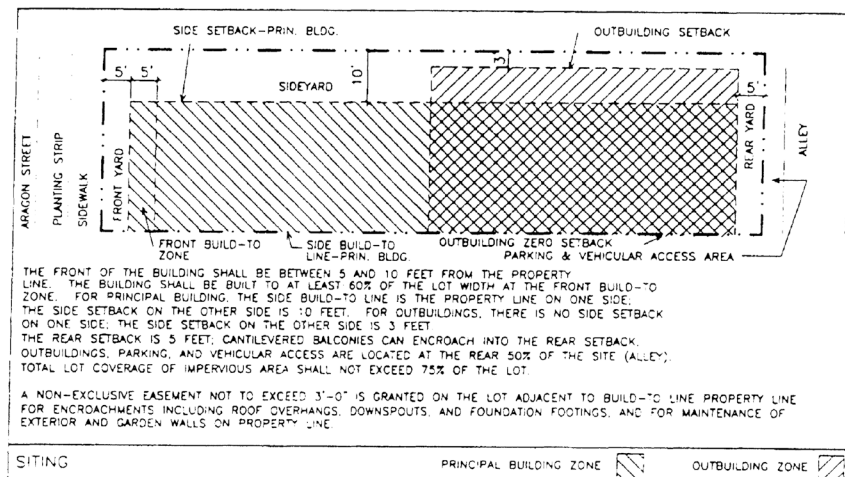 SIDE SETBACK-PRIN. BLDG.
OUTBUILDING SETBACK
5' 5'
SIDEYARD
10'
3'
5'
ARAGON STREET
PLANTING STRIP
SIDEWALK
FRONT YARD
REAR YARD
ALLEY
FRONT BUILD-TO
ZONE
SIDE BUILD-TO
LINE-PRIN. BLDG.
OUTBUILDING ZERO SETBACK
PARKING & VEHICULAR ACCESS AREA
THE FRONT OF THE BUILDING SHALL BE BETWEEN 5 AND 10 FEET FROM THE PROPERTY
LINE. THE BUILDING SHALL BE BUILT TO AT LEAST 60% OF THE LOT WIDTH AT THE FRONT BUILD-TO
ZONE. FOR PRINCIPAL BUILDING, THE SIDE BUILD-TO LINE IS THE PROPERTY LINE ON ONE SIDE;
THE SIDE SETBACK ON THE OTHER SIDE IS 10 FEET. FOR OUTBUILDINGS, THERE IS NO SIDE SETBACK
ON ONE SIDE; THE SIDE SETBACK ON THE OTHER SIDE IS 3 FEET
THE REAR SETBACK IS 5 FEET; CANTILEVERED BALCONIES CAN ENCROACH INTO THE REAR SETBACK.
OUTBUILDINGS, PARKING, AND VEHICULAR ACCESS ARE LOCATED AT THE REAR 50% OF THE SITE (ALLEY).
TOTAL LOT COVERAGE OF IMPERVIOUS AREA SHALL NOT EXCEED 75% OF THE LOT.
A NON-EXCLUSIVE EASEMENT NOT TO EXCEED 3'-0" IS GRANTED ON THE LOT ADJACENT TO BUILD-TO LINE PROPERTY LINE
FOR ENCROACHMENTS INCLUDING ROOF OVERHANGS, DOWNSPOUTS, AND FOUNDATION FOOTINGS, AND FOR MAINTENANCE OF
EXTERIOR AND GARDEN WALLS ON PROPERTY LINE.
SITING
PRINCIPAL BUILDING ZONE
OUTBUILDING ZONE